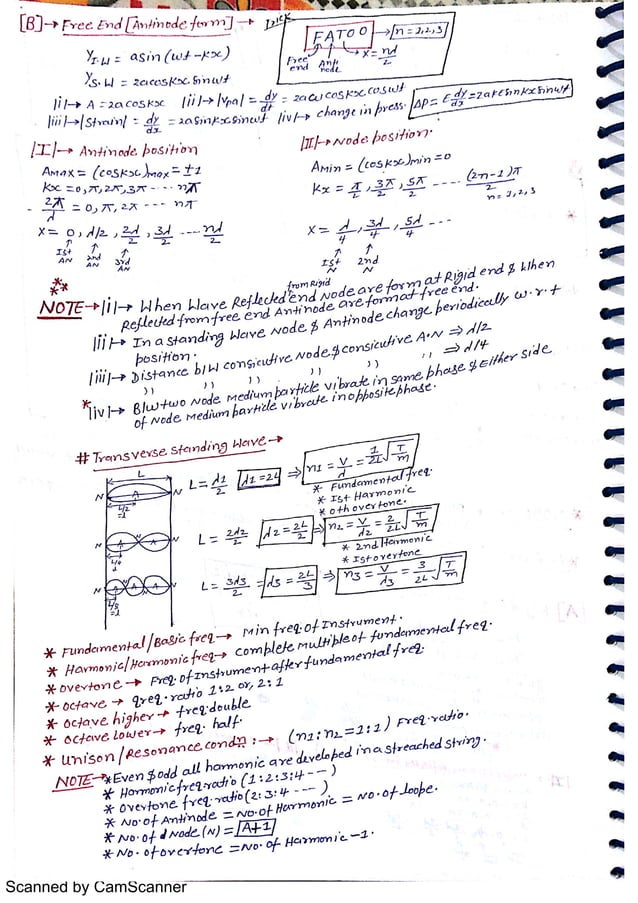 [B]→ Free End [Antinode form] → Trick
FATOO → n = 1,2,3
Free end Anti node x = nλ/2
y I.W = a sin(ωt - kx)
y S.W = 2a cos kx sin ωt
|i|→ A = 2a cos kx |ii|→ |Vpa| = dy/dt = 2aω cos kx cos ωt
|iii|→ |Strain| = dy/dx = 2a sin kx sin ωt |iv|→ change in press. ΔP = E dy/dx = 2akE sin kx sin ωt
|I|→ Antinode position
Amax = (cos kx)max = ±1
kx = 0, π, 2π, 3π ---- nπ
2π/λ = 0, π, 2π ---- nπ
x = 0, λ/2, 2λ/2, 3λ/2 ---- nλ/2
Ist AN 2nd AN 3rd AN
|II|→ Node position.
Amin = (cos kx)min = 0
kx = π/2, 3π/2, 5π/2 ---- (2n-1)π/2
n = 1,2,3
x = λ/4, 3λ/4, 5λ/4 ---
Ist N 2nd N
NOTE → |i|→ When Wave Reflected from Rigid end Node are form at Rigid end & When
Reflected from free end Antinode are format free end.
|ii|→ In a standing Wave Node & Antinode change periodically w.r.t
position.
|iii|→ Distance b/w consicutive Node & consicutive A.N ⇒ λ/2
" " " " " ⇒ λ/4
*|iv|→ B/w two Node Medium particle vibrate in same phase & Either side
of Node Medium particle vibrate in opposite phase.
# Transverse Standing Wave →
L
N A N
L/2
L = λ1/2 λ1 = 2L ⇒ n1 = V/λ = 1/2L √T/m
* Fundamental freq.
* Ist Harmonic
* 0th overtone.
N A A N
L/4
L = 2λ2/2 λ2 = 2L/2 ⇒ n2 = V/λ2 = 2/2L √T/m
* 2nd Harmonic
* Ist overtone
N A A A N
L = 3λ3/2 = λ3 = 2L/3 ⇒ n3 = V/λ3 = 3/2L √T/m
* Fundamental/Basic freq → Min freq. of Instrument.
* Harmonic/Harmonic freq → complete Multiple of fundamental freq.
* overtone → Freq. of Instrument after fundamental freq.
* octave → freq. ratio 1:2 or, 2:1
* octave higher → freq. double
* octave Lower → freq. half.
* unison/Resonance condn: → (n1:n2 = 1:1) Freq. ratio.
NOTE → * Even & odd all harmonic are developed in a streached string.
* Harmonic freq ratio (1:2:3:4 ---)
* Overtone freq. ratio (2:3:4 ---- )
* No. of Antinode = No. of Harmonic = No. of loope.
* No. of d Node (N) = A+1
* No. of overtone = No. of Harmonic - 1.
Scanned by CamScanner